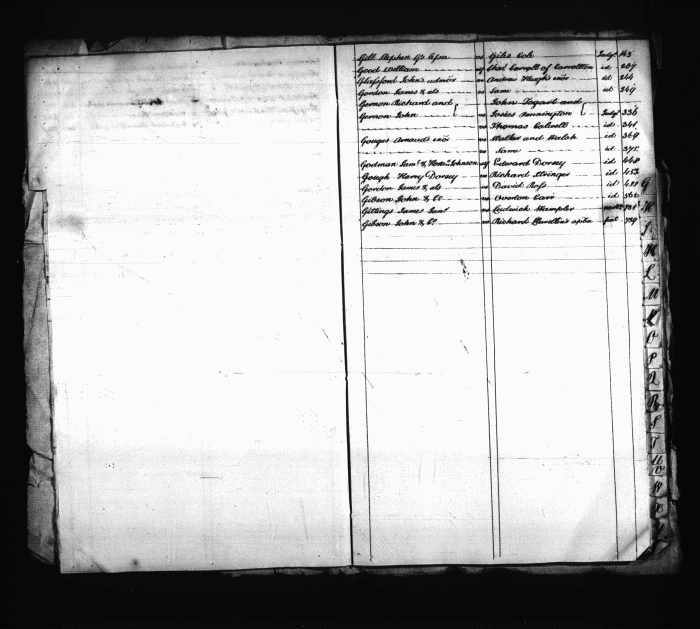 Gill Stephen Gs Assee vs Giles Cole Judgt 145
Good William vs Chas Carroll of Carrollton id 207
Glassford John's admor vs Andrew Hugh's exor id 244
Gordon James & als vs Same id 249
Gernon Richard and vs John Hogart and
Gernon John Joshua Pennington Judgt 336
vs Thomas Calwell id 341
Gouges Arnaud's exor vs Walker and Walsh id 369
vs Same id 375
Godman Saml & Johnson vs Edward Dorsey id 448
Gough Harry Dorsey vs Richard id 453
Gordon James & als vs David Ross id 488
Gibson John & Co vs Overton Carr id 562
Gittings James Senr vs Ludwick Wampler 721
Gibson John & Co vs Richard 729
G
H
I
K
L
M
N
O
P
Q
R
S
T
U
V
W